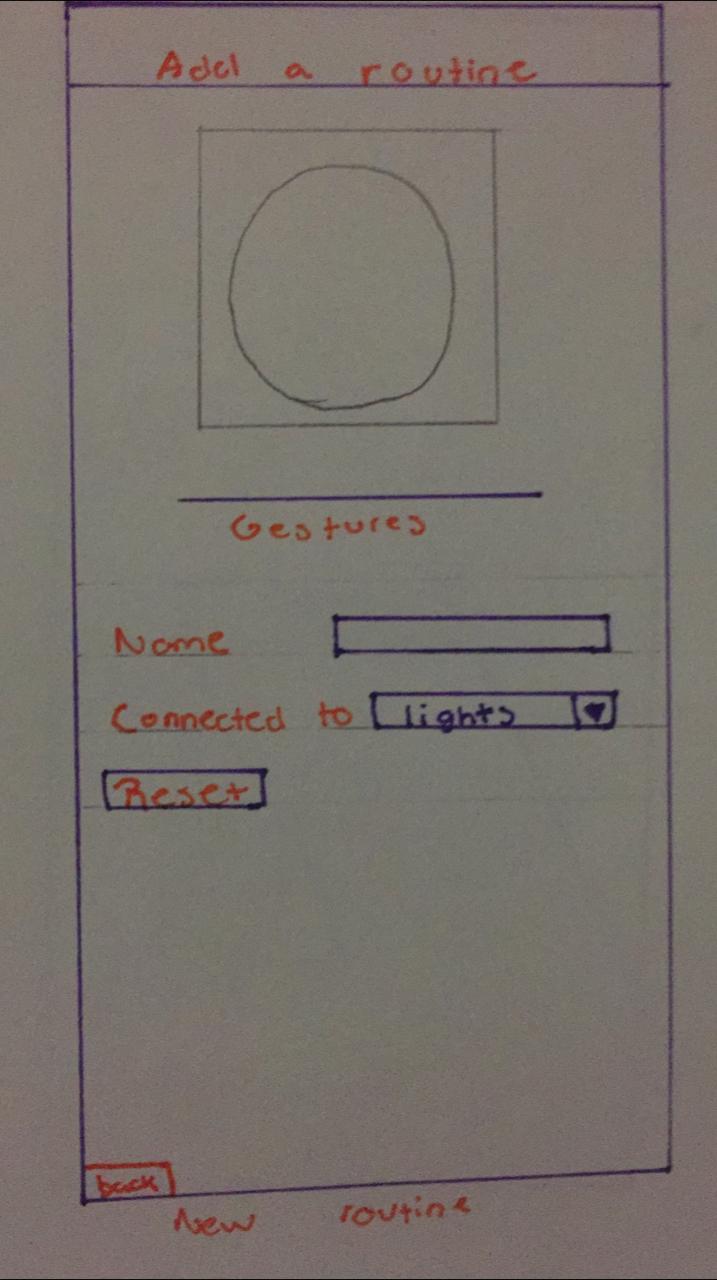 Add a routine
Gestures
Name
Connected to lights
Reset
back
New routine